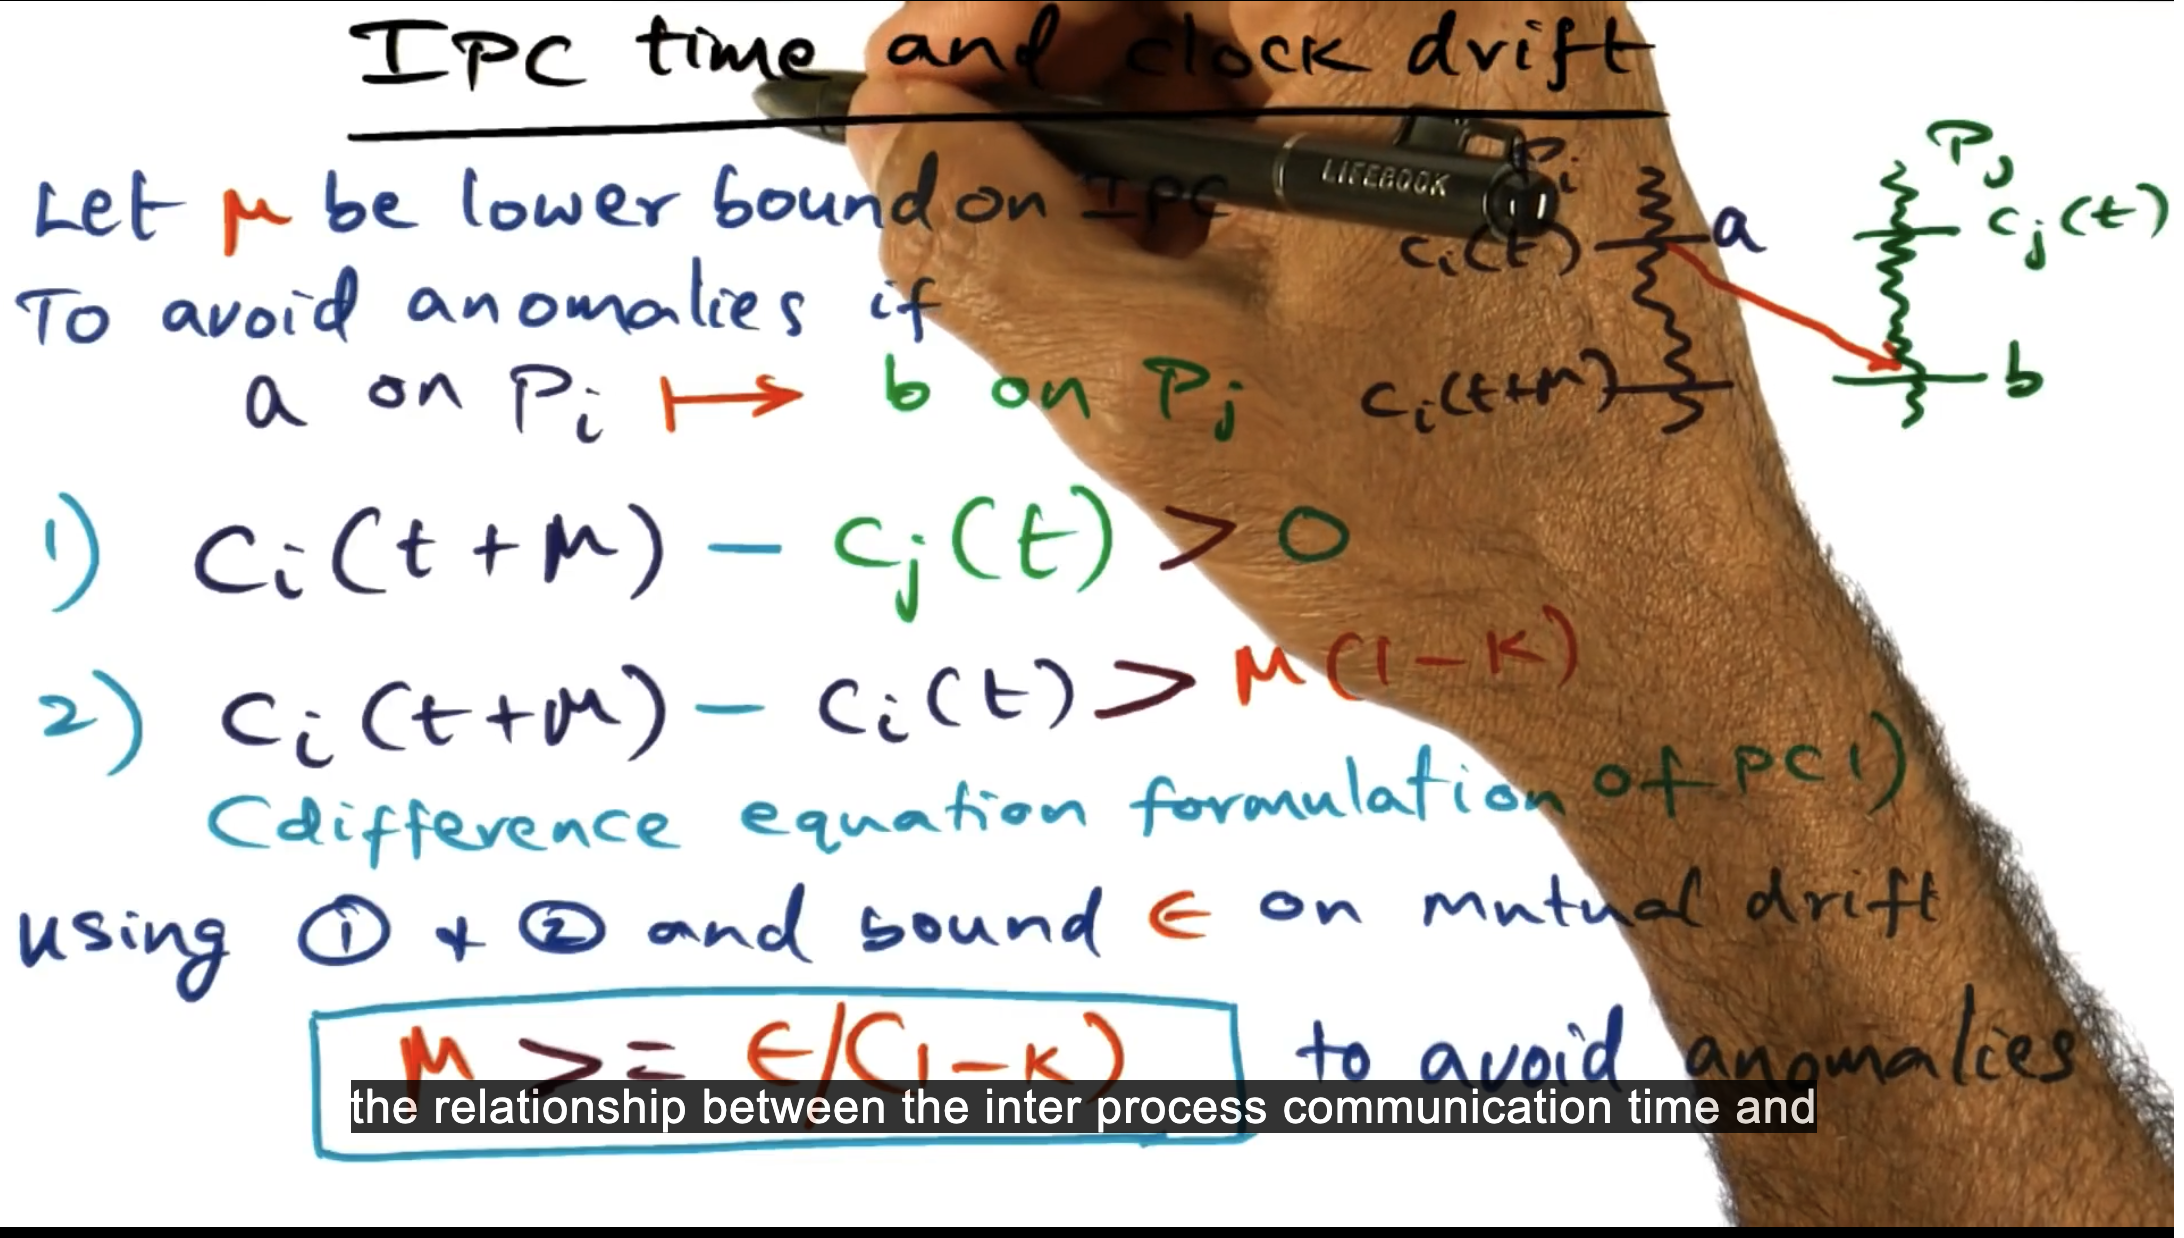 IPC time and clock drift
Let μ be lower bound on IPC
To avoid anomalies if
a on Pi ↦ b on Pj
1) Ci(t+μ) - Cj(t) > 0
2) Ci(t+μ) - Ci(t) > μ(1-K)
(difference equation formulation of PC1)
using ① + ② and bound ∈ on mutual drift
μ >= ∈/(1-K) to avoid anomalies
the relationship between the inter process communication time and
LIFEBOOK
Pi
Ci(t)
a
Ci(t+μ)
Pj
Cj(t)
b